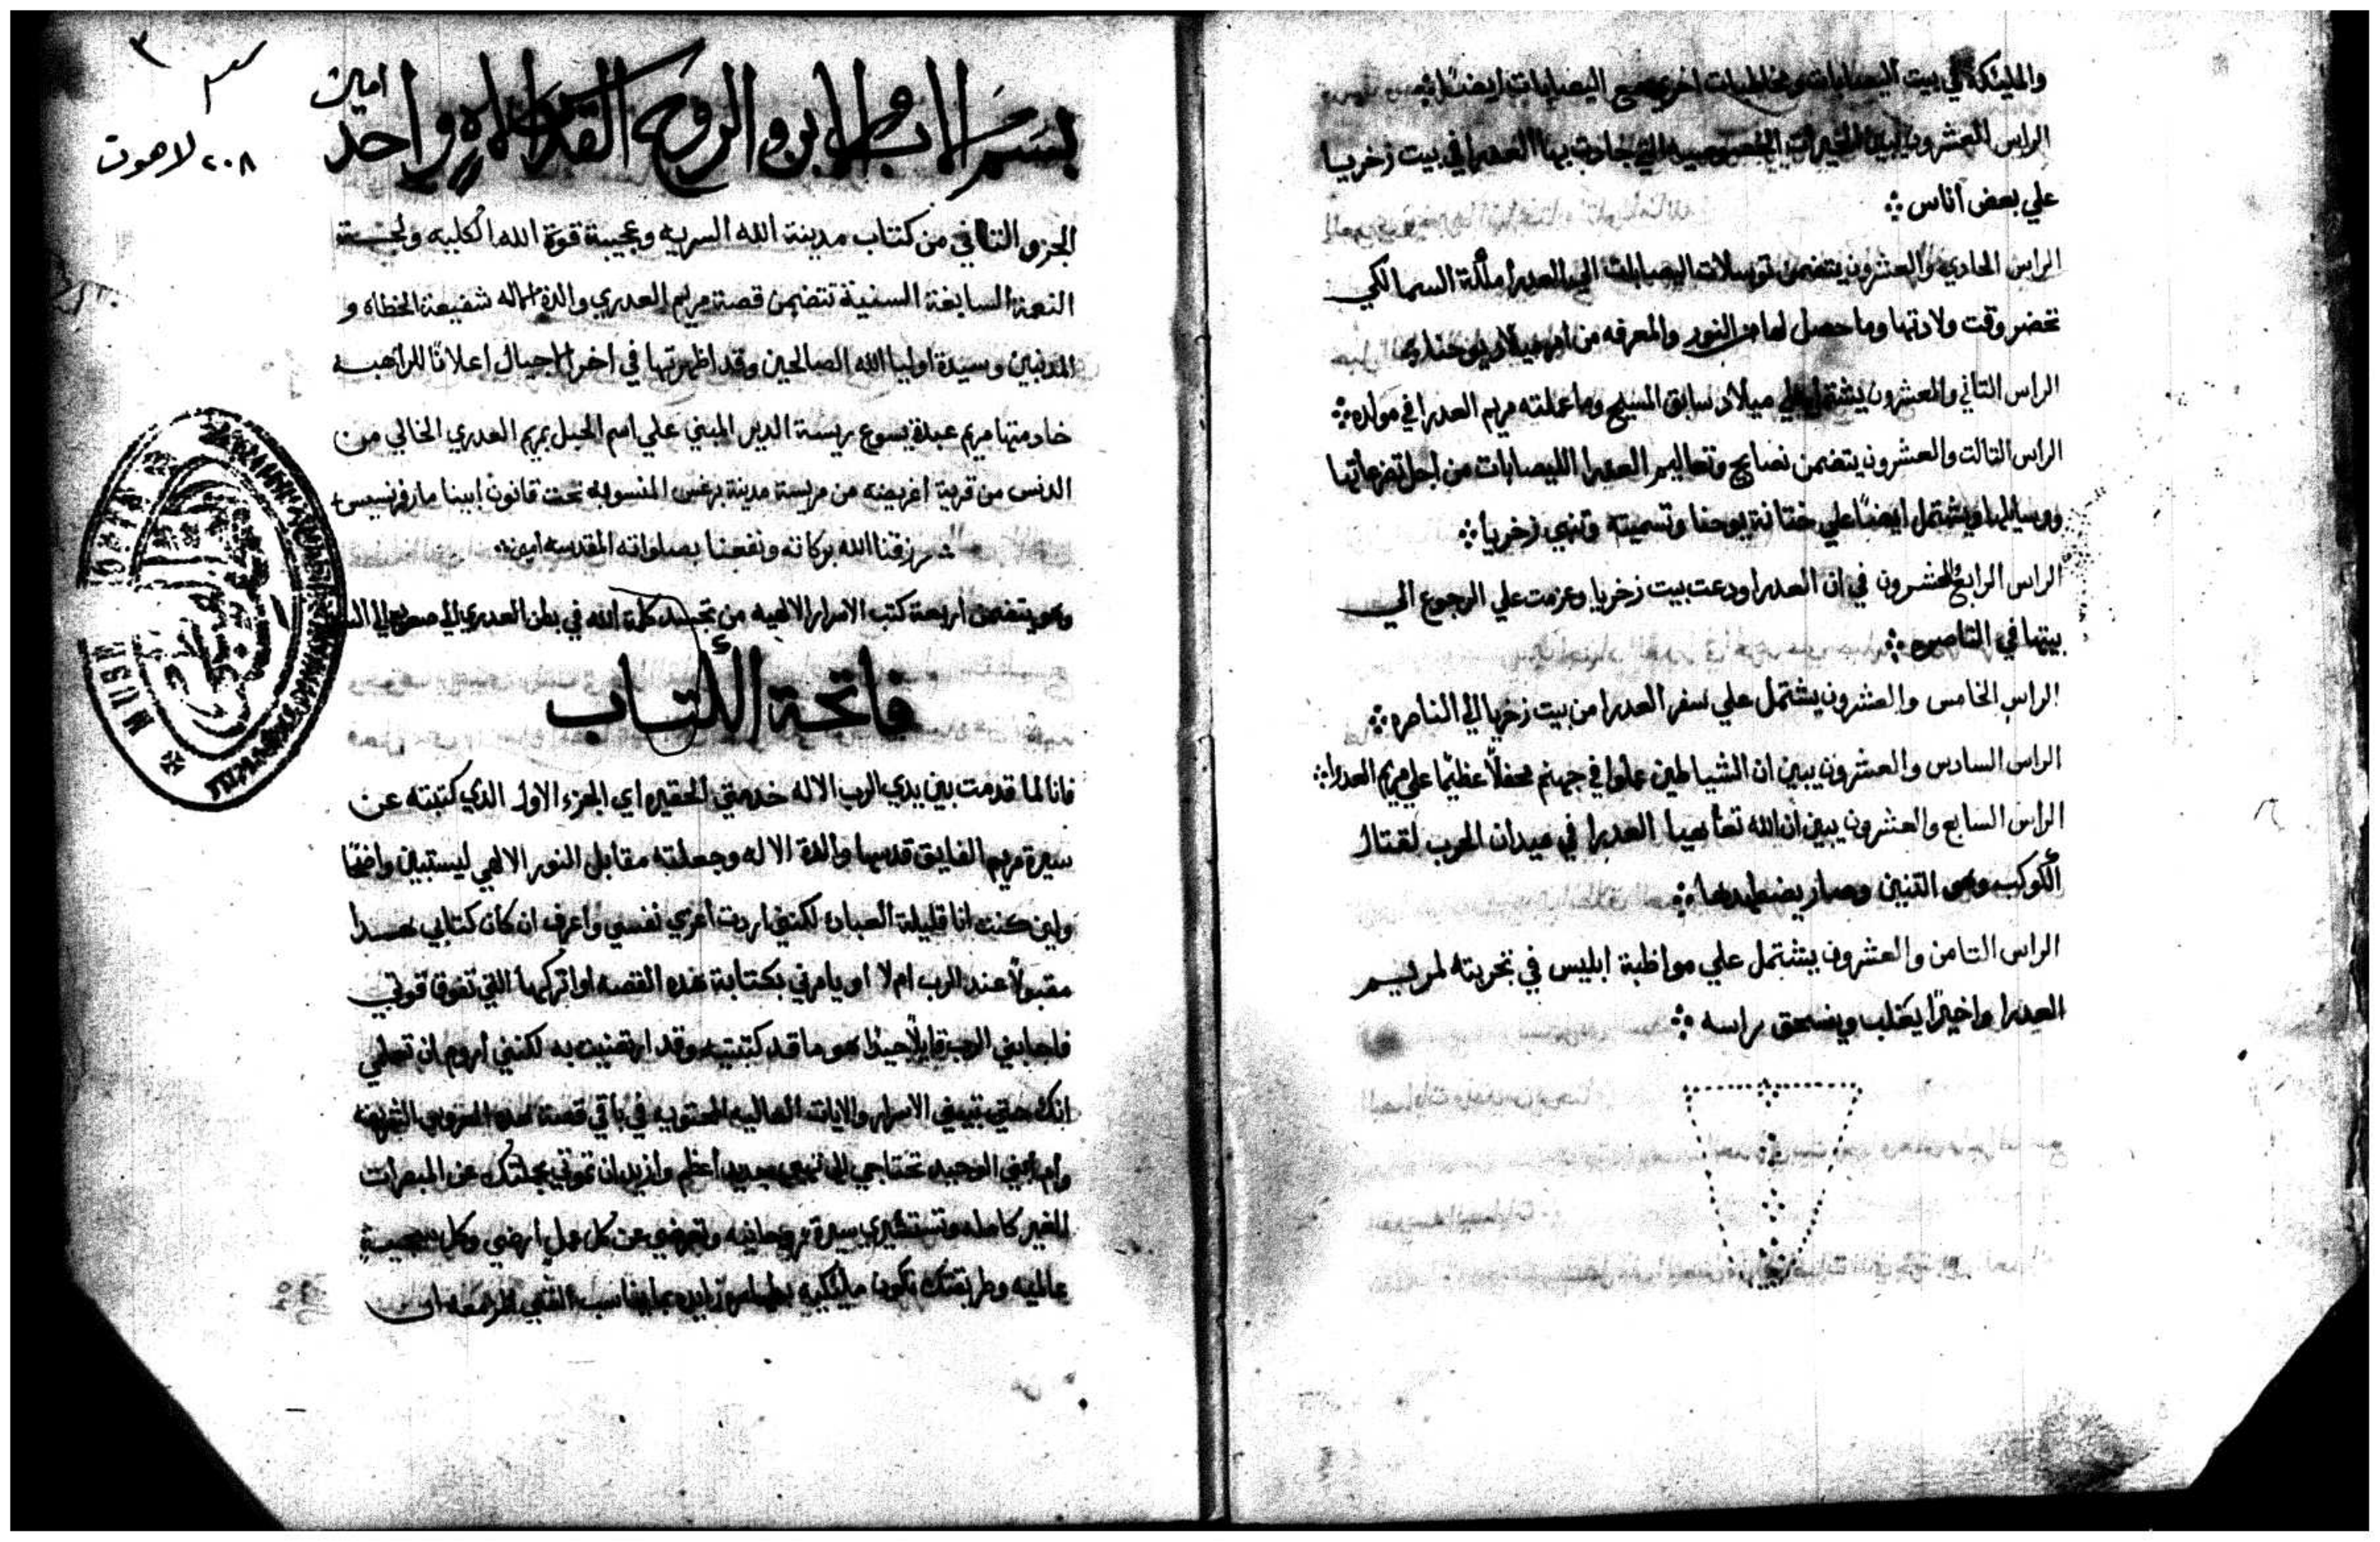 والمليكة في بيت اليصابات ومخاطبات اخري مع اليصابات ايضًا
الراس العشرون يبين الخيرات الخصوصيه التي جادت بها العدرا في بيت زخريا
علي بعض اناس
الراس الحادي والعشرون يتضمن توسلات اليصابات الي العدرا ملكة السما لكي
تحضر وقت ولادتها وما حصل لها من النور والمعرفه من امر ميلاد يوحنا
الراس التاني والعشرون يشتمل علي ميلاد سابق المسيح وما عملته مريم العدرا في مولده
الراس التالت والعشرون يتضمن نصايح وتعاليم العدرا لاليصابات من اجل تضرعاتها
وسايلها ويشتمل ايضًا علي ختانة يوحنا وتسميته وتنبي زخريا
الراس الرابع والعشرون في ان العدرا ودعت بيت زخريا وعزمت علي الرجوع الي
بيتها في الناصره
الراس الخامس والعشرون يشتمل علي سفر العدرا من بيت زخريا الي الناصره
الراس السادس والعشرون يبين ان الشياطين عملوا في جهنم محفلًا عظيمًا علي مريم العدرا
الراس السابع والعشرون يبين ان الله تعا هيا العدرا في ميدان الحرب لقتال
الكوكب وهو التنين وصار يضطهدها
الراس التامن والعشرون يشتمل علي مواظبة ابليس في تجربته لمريم
العدرا واخيرًا يغلب وينسحق راسه
٣
٢٠٨ لاهوت
بسم الاب والابن والروح القدس الاه واحد امين
الجزو التاني من كتاب مدينة الله السريه وعجيبة قوة الله الكليه ولجة
النعمة السابغة السنية تتضمن قصة مريم العدري والدة الاله شفيعة الخطاه و
المدنبين وسيدة اوليا الله الصالحين وقد اظهرتها في اخر الاجيال اعلانًا للراهبه
خادمتها مريم عبدة يسوع ريسة الدير المبني علي اسم الحبل بمريم العدري الخالي من
الدنس من قرية اغريضه من مدينة برغس المنسوبه تحت قانون ابينا مار فرنسيس
رزقنا الله بركاته ونفعنا بصلواته المقدسه امين
وهو يتضمن اربعة كتب الاسرار الالهيه من تجسد كلمة الله في بطن العدري الي صعوده الي السما
فاتحة الكتاب
فانا لما قدمت بين يدي الرب الاله خدمتي الحقيره اي الجزء الاول الدي كتبته عن
سيرة مريم الفايق قدسها والدة الاله وجعلته مقابل النور الالهي ليستبين واضحًا
ولين كنت انا قليلة العباده لكنني اردت اعزي نفسي واعرف ان كان كتابي هدا
مقبولًا عند الرب ام لا او يامرني بكتابة هده القصه او اتركها التي تفوق قوتي
فاجابني الرب قايلًا جيدًا هو ما قد كتبتيه وقد ارتضيت به لكنني اروم ان تعلمي
انك حتي تبيني الاسرار والايات العاليه المحتويه في باقي قصة هده العزوبه الشريفه
وام ابني الوحيد تحتاجي الي جديد اعظم واريد ان تموتي بجملتك عن المبصرات
الغير كامله وتستسيري سيرة روحانيه وتعرضي عن كل عمل ارضي وكل
عالميه وطريقتك تكون مليكيه